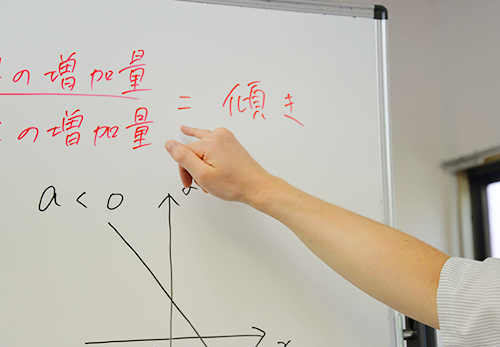 の増加量
の増加量 = 傾き
a < 0